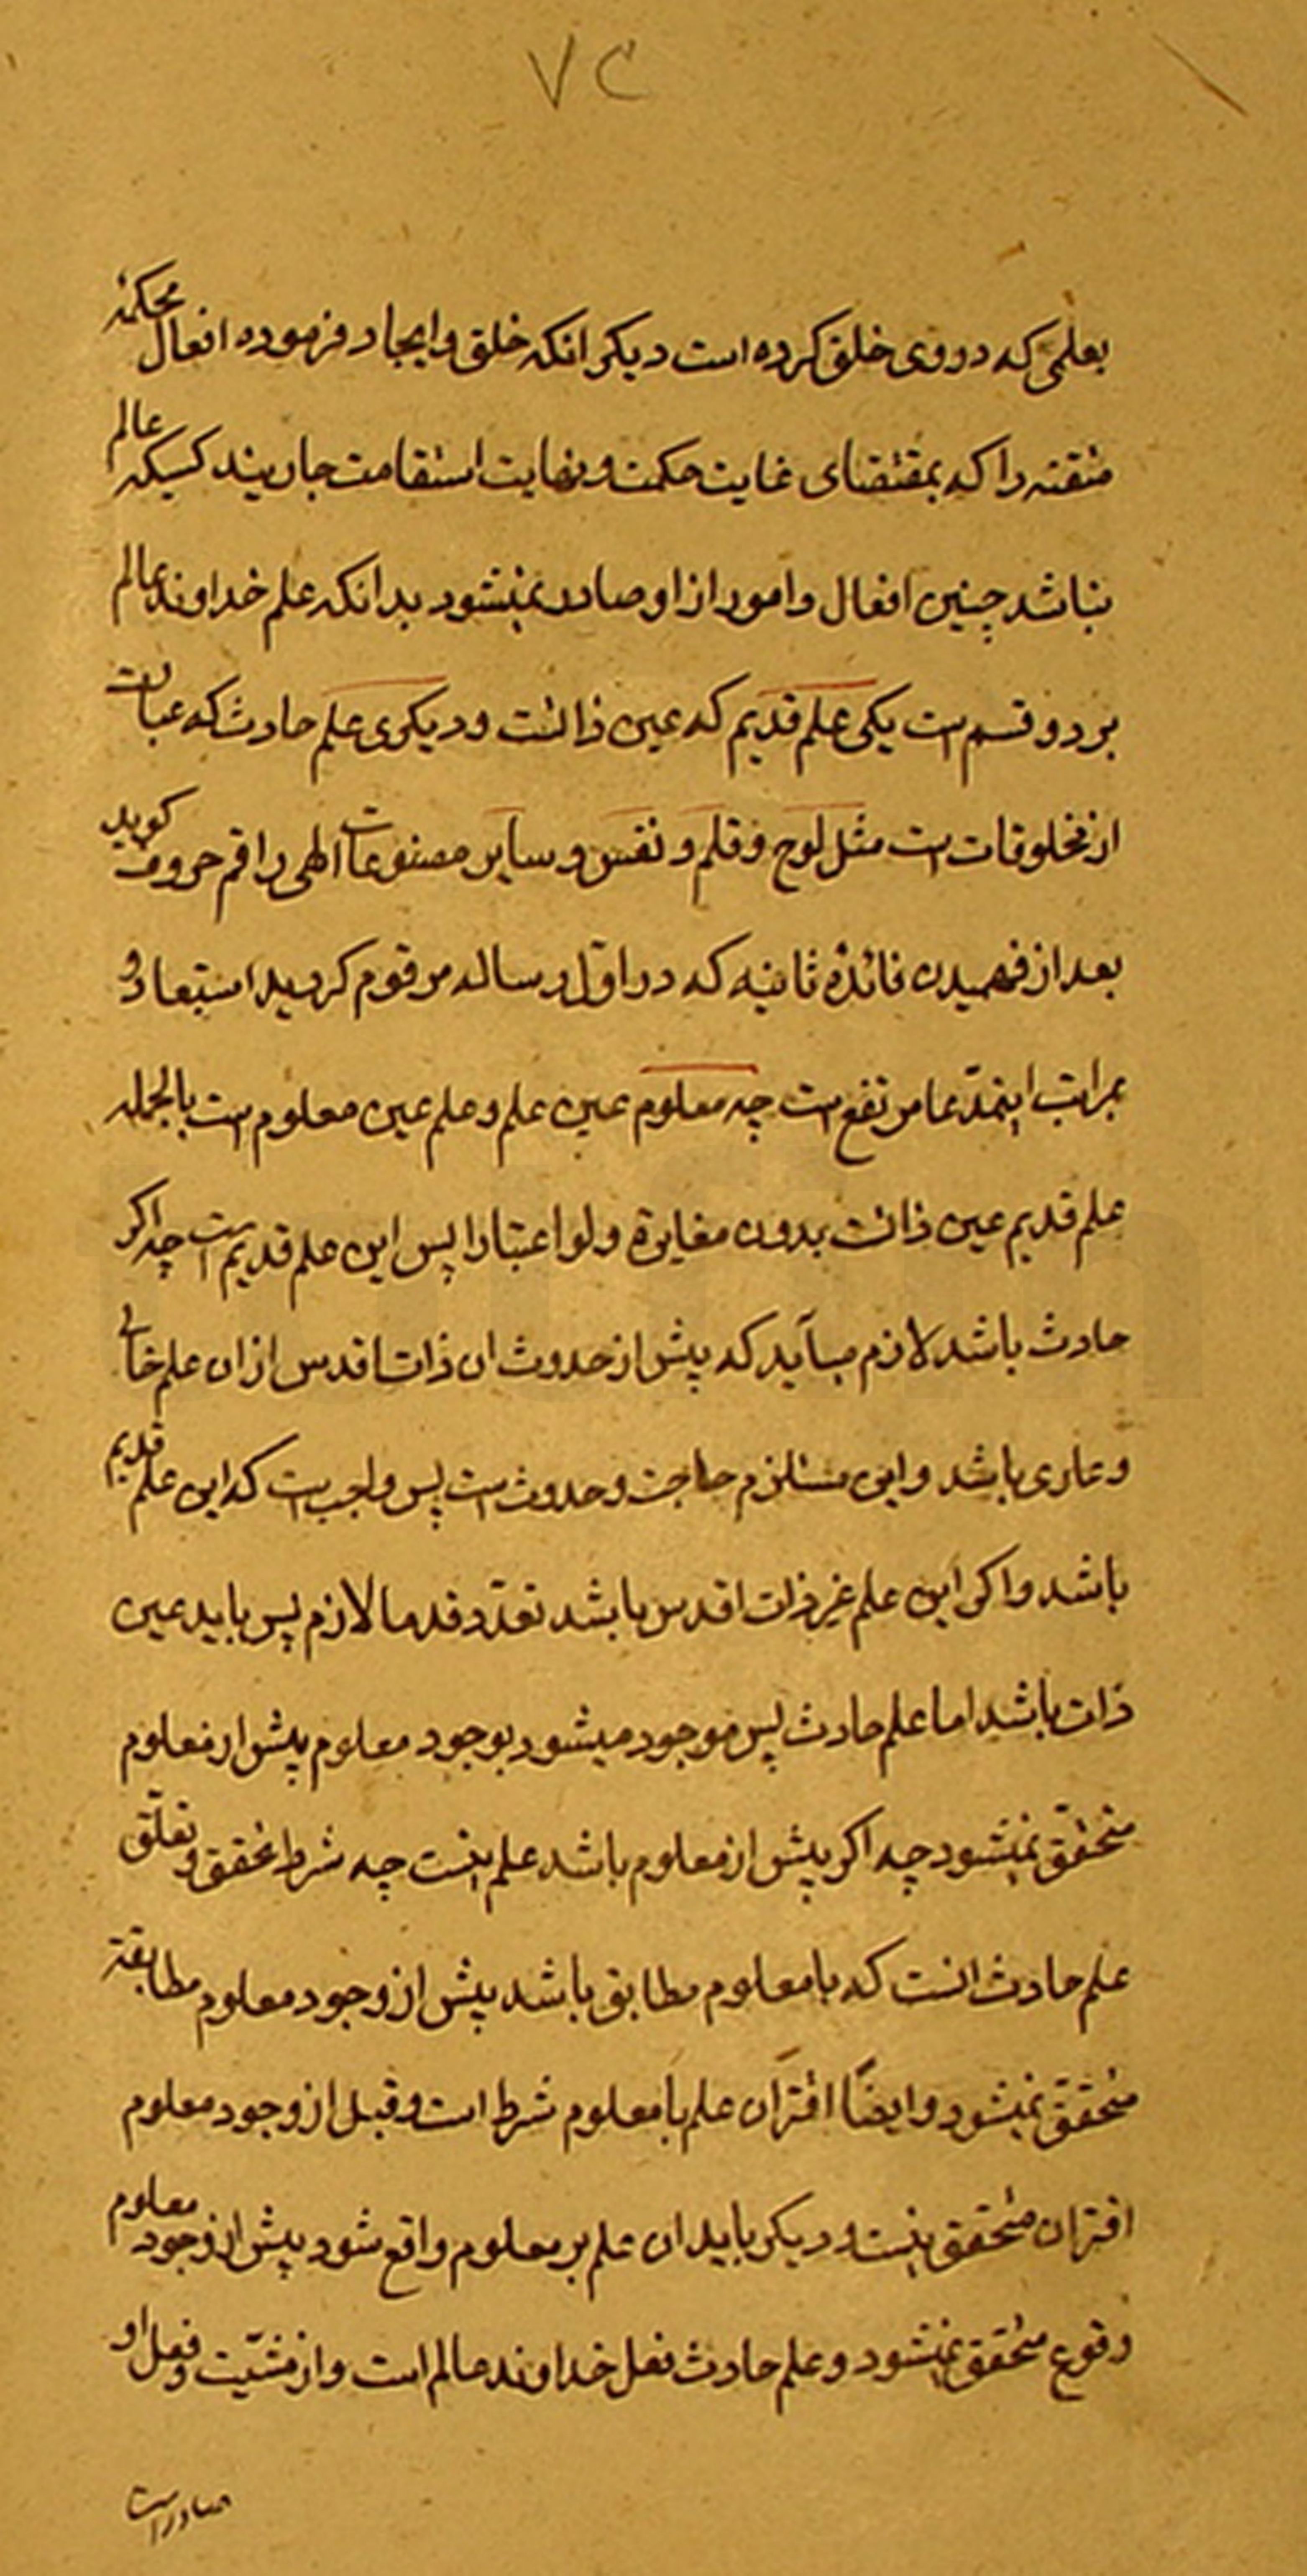 ۷۲
بعلمی که در وی خلق کرده است دیکر انکه خلق و ایجاد فرموده افعال محکمه
متقنه را که بمقتضای غایت حکمت و نهایت استقامت جاریند کسیکه عالم
نباشد چنین افعال و امور از او صادر نمیشود بدانکه علم خداوند عالم
بر دو قسم است یکی علم قدیم که عین ذاتست و دیکری علم حادث که عبارت
از مخلوقات است مثل لوح و قلم و نفس و سایر مصنوعات الهی راقم حروف کوید
بعد از فهمیدن فائدهٔ ثانیه که در اوّل رساله مرقوم کردید استبعاد و
غرابت اینمدّعا مرتفع است چه معلوم عین علم و علم عین معلوم است بالجمله
علم قدیم عین ذاتست بدون مغایرة ولو اعتبارا پس این علم قدیم است چه اکر
حادث باشد لازم میآید که پیش از حدوث ان ذات اقدس از ان علم خالی
و عاری باشد و این مستلزم حاجت و حدوث است پس واجب است که این علم قدیم
باشد و اکر این علم غیر ذات اقدس باشد تعدّد قدما لازم پس باید عین
ذات باشد اما علم حادث پس موجود میشود بوجود معلوم پیش از معلوم
متحقّق نمیشود چه اکر پیش از معلوم باشد علم نیست چه شرط تحقق و تعلّق
علم حادث انست که با معلوم مطابق باشد پیش از وجود معلوم مطابقة
متحقّق نمیشود و ایضًا اقتران علم با معلوم شرط است و قبل از وجود معلوم
اقتران متحقق نیست و دیکر باید ان علم بر معلوم واقع شود پیش از وجود معلوم
وقوع متحقق نمیشود و علم حادث فعل خداوند عالم است و از مشیّت و فعل او
صادر است